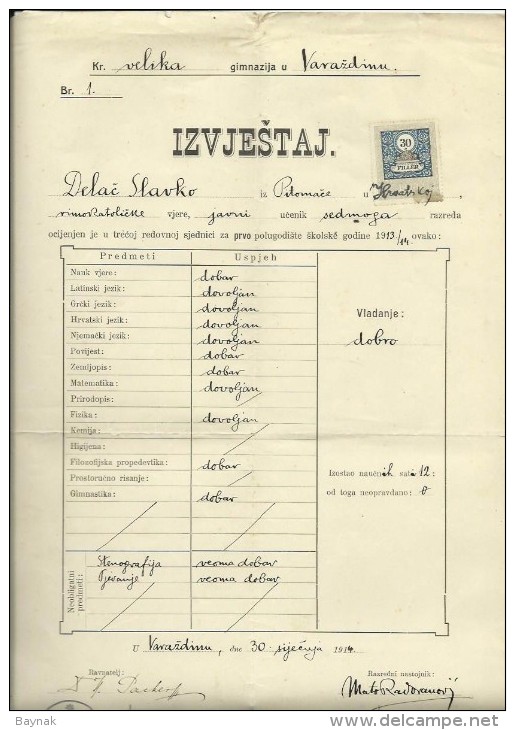 Kr. velika gimnazija u Varaždinu.
Br. 1.
30
FILLÉR
IZVJEŠTAJ.
Delač Slavko iz Pitomače u Hrvatskoj,
rimokatoličke vjere, javni učenik sedmoga razreda
ocijenjen je u trećoj redovnoj sjednici za prvo polugodište školske godine 1913/14 ovako:
Predmeti Uspjeh
Nauk vjere: dobar
Latinski jezik: dovoljan
Grčki jezik: dovoljan
Hrvatski jezik: dovoljan
Njemački jezik: dovoljan
Povijest: dobar
Zemljopis: dobar
Matematika: dovoljan
Prirodopis:
Fizika: dovoljan
Kemija:
Higijena:
Filozofijska propedevtika: dobar
Prostoručno risanje:
Gimnastika: dobar
Vladanje:
dobro
Izostao naučnih sati: 12
od toga neopravdano: 0
Neobligatni predmeti:
Stenografija veoma dobar
Pjevanje veoma dobar
U Varaždinu, dne 30. siječnja 1914.
Ravnatelj:
Razredni nastojnik:
Mato Radovanović
Baynak
delcampe.net